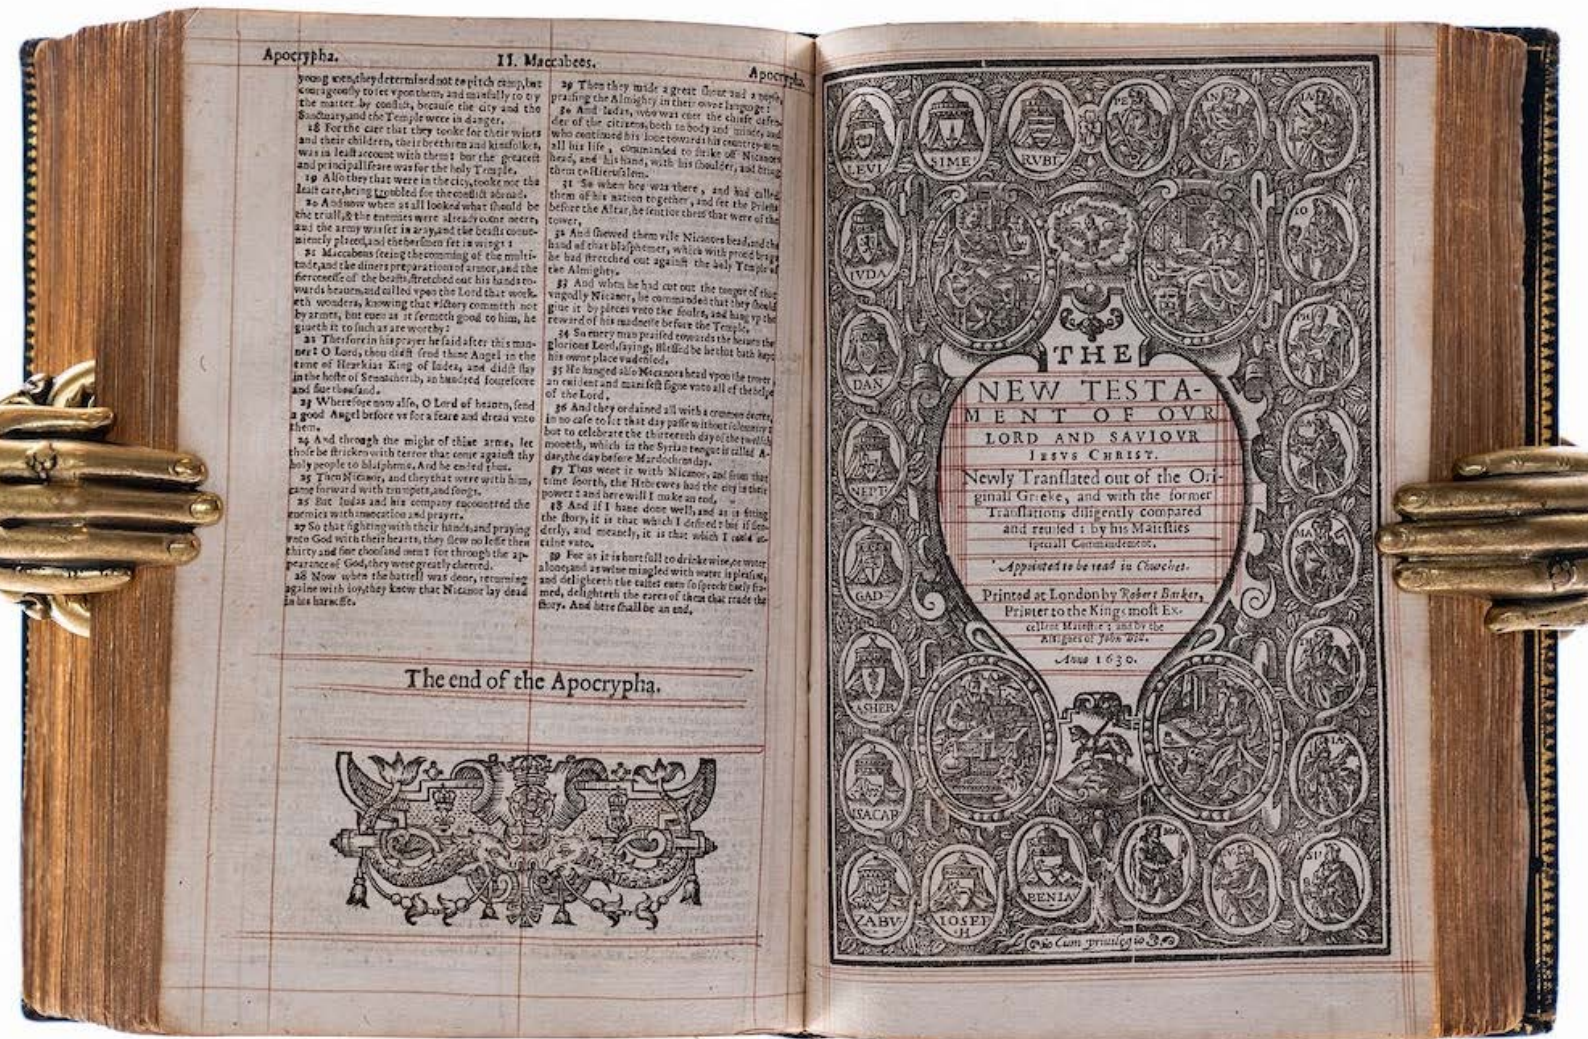 Apocrypha.
II. Maccabees.
Apocrypha.
young men, they determined not to pitch camp, but
couragiouſly to ſet vpon them, and manfully to try
the matter by conflict, becauſe the city and the
Sanctuary, and the Temple were in danger.
18 For the care that they tooke for their wiues
and their children, their brethren and kinſfolkes,
was in leaſt account with them : but the greateſt
and principall feare was for the holy Temple.
19 Alſo they that were in the city, tooke not the
leaſt care, being troubled for the conflict abroad.
20 And now when as all looked what ſhould be
the triall, & the enemies were already come neere,
and the army was ſet in aray, and the beaſts conue-
niently placed, and the horſmen ſet in wings :
21 Maccabeus ſeeing the comming of the multi-
tude, and the diuers preparations of armor, and the
fierceneſſe of the beaſts, ſtretched out his hands to-
wards heauen, and called vpon the Lord that work-
eth wonders, knowing that victory commeth not
by armes, but euen as it ſeemeth good to him, he
giueth it to ſuch as are worthy :
22 Therfore in his prayer he ſaid after this man-
ner : O Lord, thou didſt ſend thine Angel in the
time of Hezekias King of Iudea, and didſt ſlay
in the hoſte of Sennacherib, an hundred foureſcore
and fiue thouſand.
23 Wherefore now alſo, O Lord of heauen, ſend
a good Angel before vs for a feare and dread vnto
them.
24 And through the might of thine arme, let
thoſe be ſtricken with terror that come againſt thy
holy people to blaſpheme. And he ended thus.
25 Then Nicanor, and they that were with him,
came forward with trumpets, and ſongs.
26 But Iudas and his company encountred the
enemies with inuocation and prayer.
27 So that fighting with their hands, and praying
vnto God with their hearts, they ſlew no leſſe then
thirty and fiue thouſand men : for through the ap-
pearance of God, they were greatly cheered.
28 Now when the battell was done, returning
againe with ioy, they knew that Nicanor lay dead
in his harneſſe.
29 Then they made a great ſhout and a noyſe,
praiſing the Almighty in their owne language :
30 And Iudas, who was euer the chiefe defen-
der of the citizens, both in body and minde, and
who continued his loue towards his country-men
all his life, commanded to ſtrike off Nicanors
head, and his hand, with his ſhoulder, and bring
them to Hieruſalem.
31 So when hee was there, and had called
them of his nation together, and ſet the Prieſts
before the Altar, he ſent for them that were of the
tower,
32 And ſhewed them vile Nicanors head, and the
hand of that blaſphemer, which with proud brags
he had ſtretched out againſt the holy Temple of
the Almighty.
33 And when he had cut out the tongue of that
vngodly Nicanor, he commanded that they ſhould
giue it by pieces vnto the foules, and hang vp the
reward of his madneſſe before the Temple.
34 So euery man praiſed towards the heauen the
glorious Lord, ſaying, Bleſſed be he that hath kept
his owne place vndefiled.
35 He hanged alſo Nicanors head vpon the tower,
an euident and manifeſt ſigne vnto all of the helpe
of the Lord.
36 And they ordained all with a common decree,
in no caſe to let that day paſſe without ſolemnity :
but to celebrate the thirteenth day of the twelfth
moneth, which in the Syrian tongue is called A-
dar, the day before Mardocheus day.
37 Thus went it with Nicanor, and from that
time foorth, the Hebrewes had the city in their
power : and here will I make an end.
38 And if I haue done well, and as is fitting
the ſtory, it is that which I deſired : but if ſlen-
derly, and meanely, it is that which I could at-
taine vnto.
39 For as it is hurtfull to drinke wine, or water
alone, and as wine mingled with water is pleaſant,
and delighteth the taſte : euen ſo ſpeech finely fra-
med, delighteth the eares of them that reade the
ſtory. And here ſhall be an end.
The end of the Apocrypha.
LEVI
SIME
RVBE
PE
AN
IA
IVDA
IO
DAN
PH
NEPT
BA
GAD
MA
ASHER
TH
ISACAR
IA
ZABV
IOSEP
H
BENIA
MA
SI
THE
NEW TESTA-
MENT OF OVR
LORD AND SAVIOVR
IESVS CHRIST.
Newly Tranſlated out of the Ori-
ginall Greeke, and with the former
Tranſlations diligently compared
and reuiſed : by his Maieſties
ſpeciall Commandement.
Appointed to be read in Churches.
Printed at London by Robert Barker,
Printer to the Kings moſt Ex-
cellent Maieſtie : and by the
Aſſignes of John Bill.
Anno 1630.
Cum priuilegio